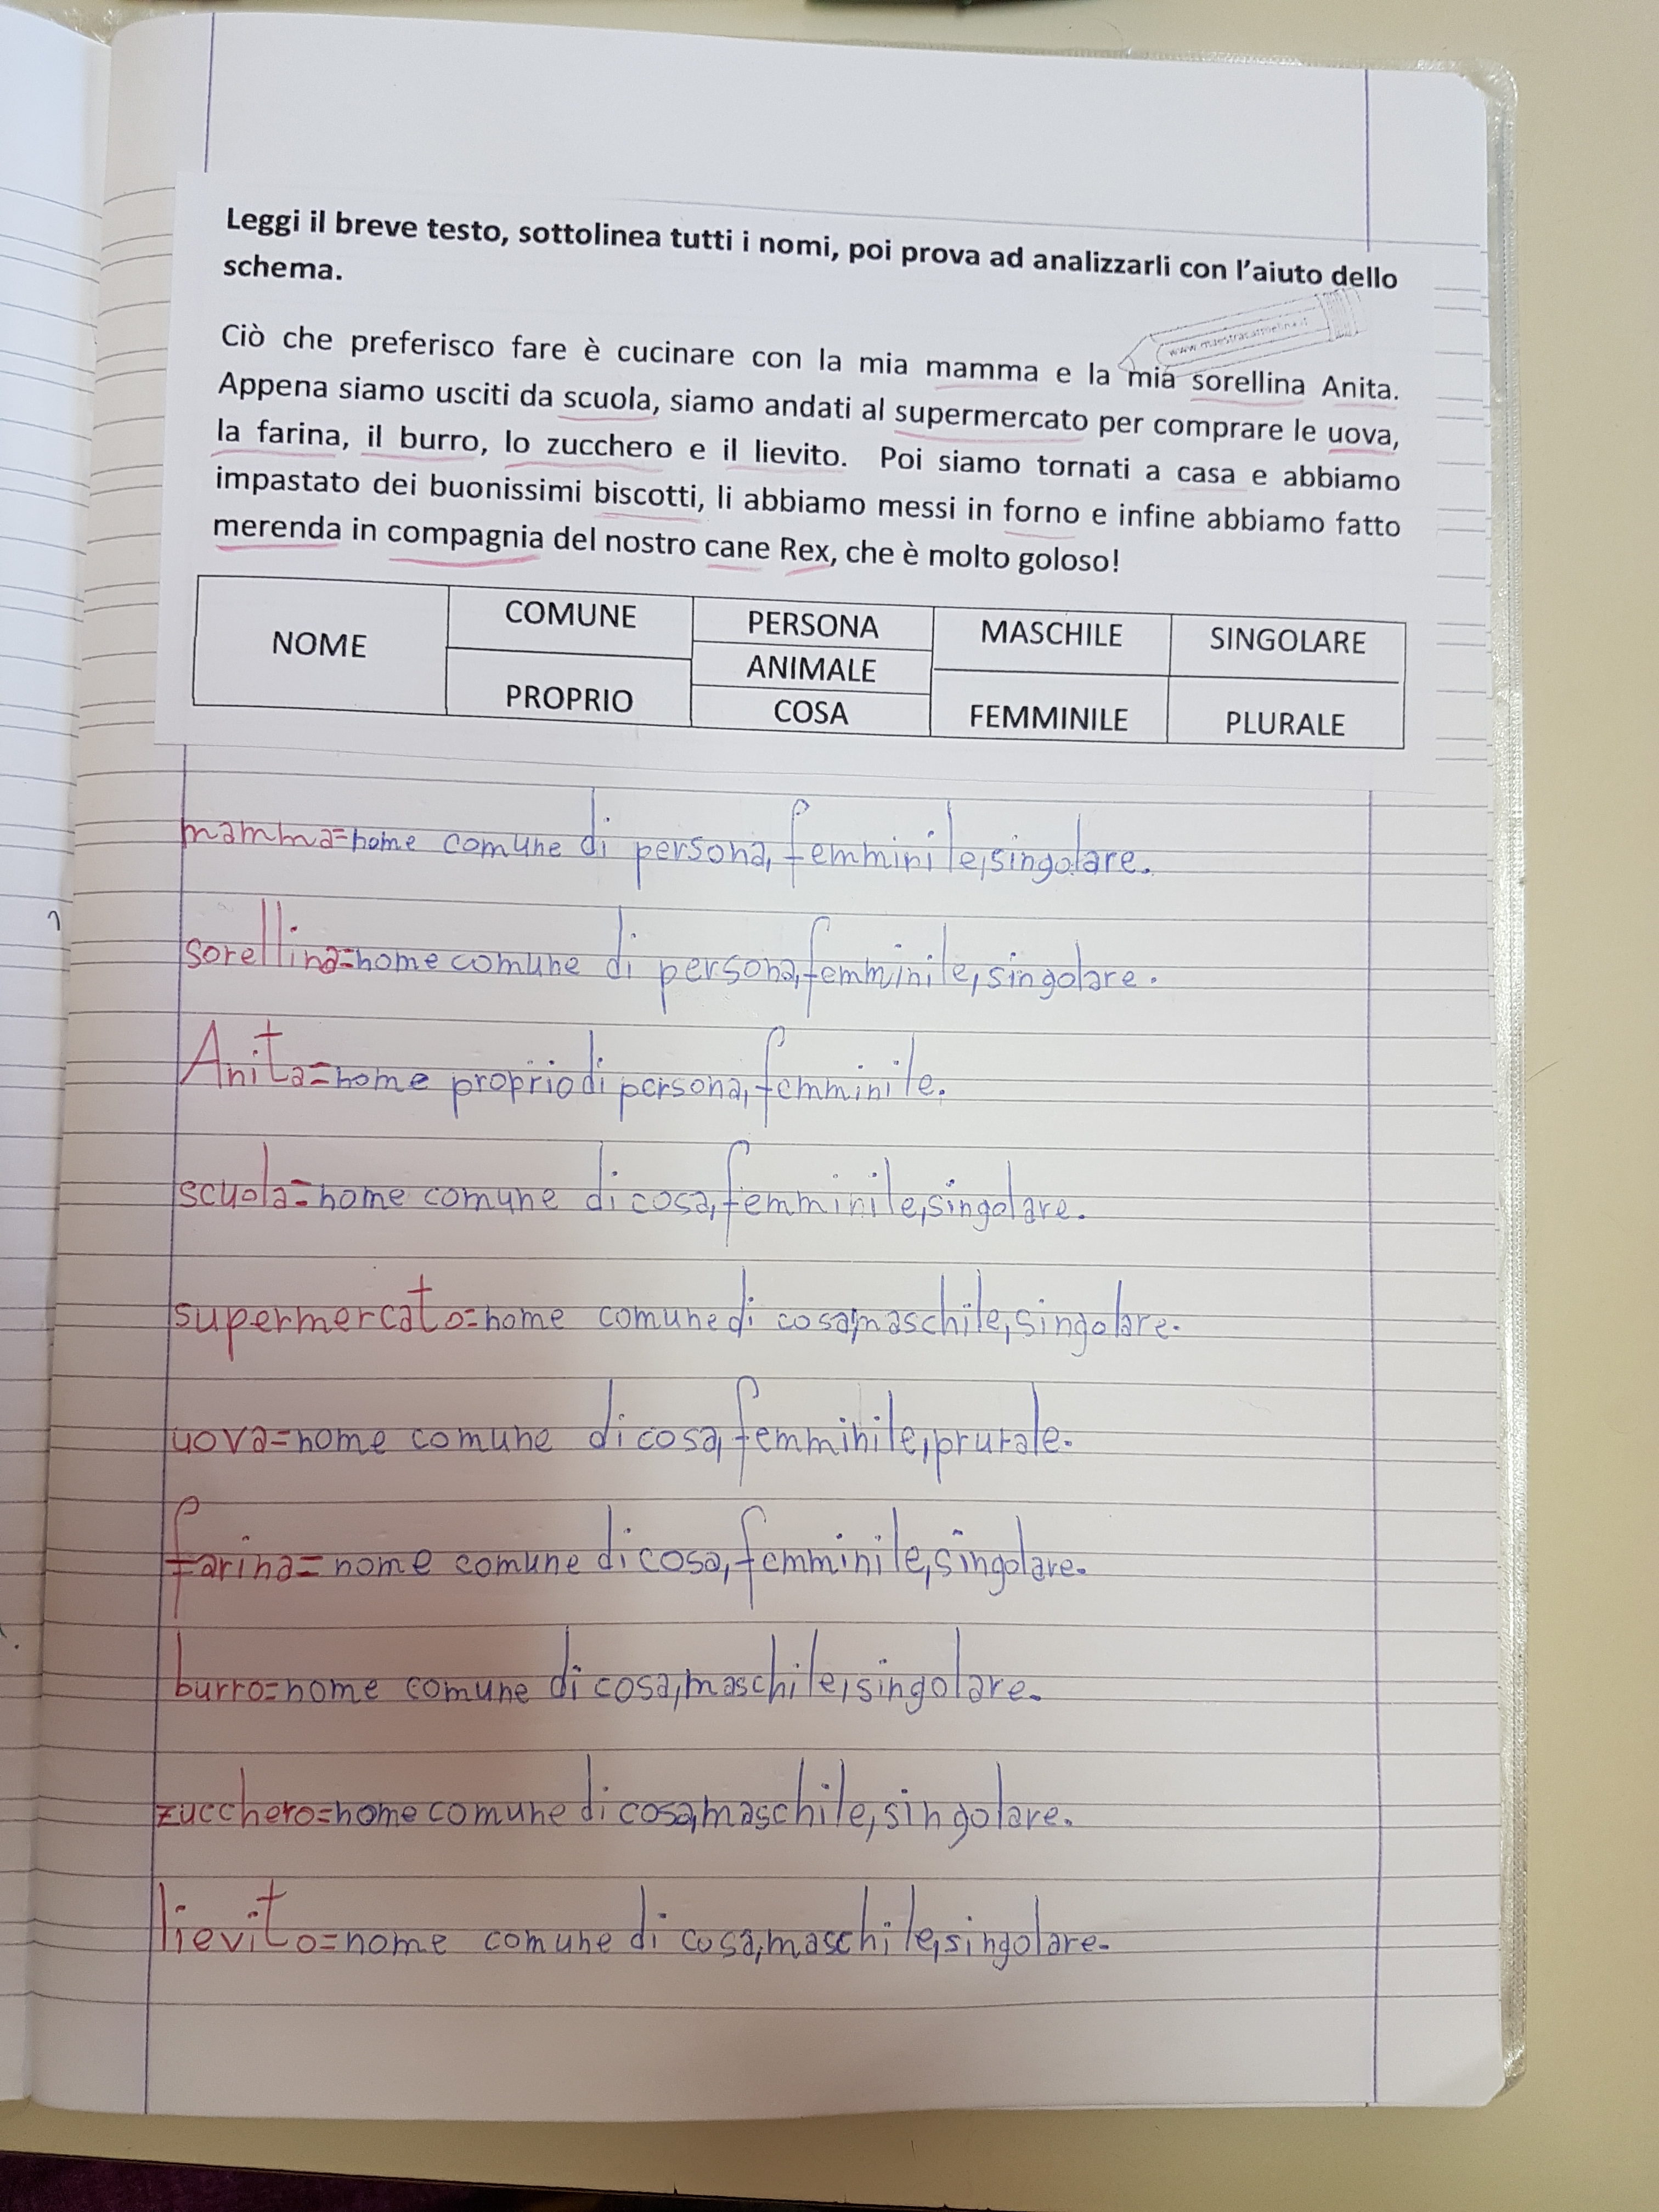 Leggi il breve testo, sottolinea tutti i nomi, poi prova ad analizzarli con l'aiuto dello
schema.
www.maestracarmelina.it
Ciò che preferisco fare è cucinare con la mia mamma e la mia sorellina Anita.
Appena siamo usciti da scuola, siamo andati al supermercato per comprare le uova,
la farina, il burro, lo zucchero e il lievito. Poi siamo tornati a casa e abbiamo
impastato dei buonissimi biscotti, li abbiamo messi in forno e infine abbiamo fatto
merenda in compagnia del nostro cane Rex, che è molto goloso!
NOME
COMUNE
PROPRIO
PERSONA
ANIMALE
COSA
MASCHILE
FEMMINILE
SINGOLARE
PLURALE
mamma=nome comune di persona, femminile,singolare.
sorellina=nome comune di persona,femminile,singolare.
Anita=nome proprio di persona,femminile.
scuola=nome comune di cosa,femminile,singolare.
supermercato=nome comune di cosa,maschile,singolare.
uova=nome comune di cosa,femminile,prurale.
farina=nome comune di cosa,femminile,singolare.
burro=nome comune di cosa,maschile,singolare.
zucchero=nome comune di cosa,maschile,singolare.
lievito=nome comune di cosa,maschile,singolare.